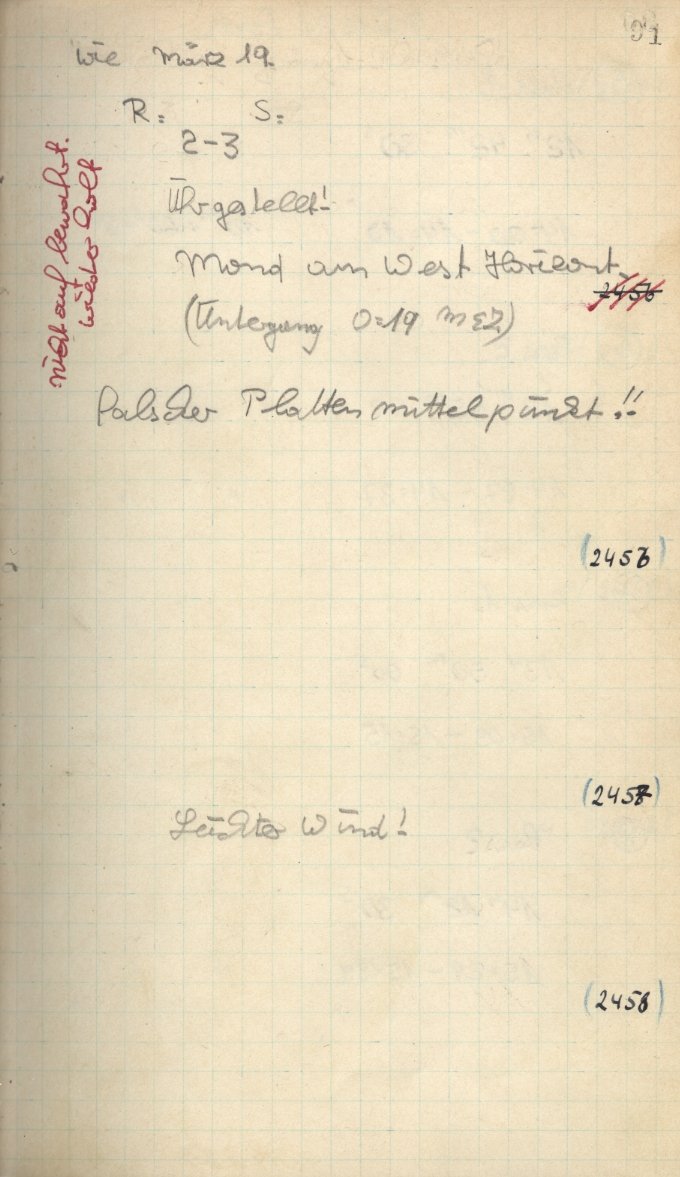 91
wie März 19.
R: S:
2-3
nicht aufbewahrt.
wiederholt
Uhr gestellt!
Mond am West Horizont.
2456
(Untergang 0=19 MEZ)
falscher Plattenmittelpunkt!!
(2456)
(2457)
Leichter Wind!
(2458)